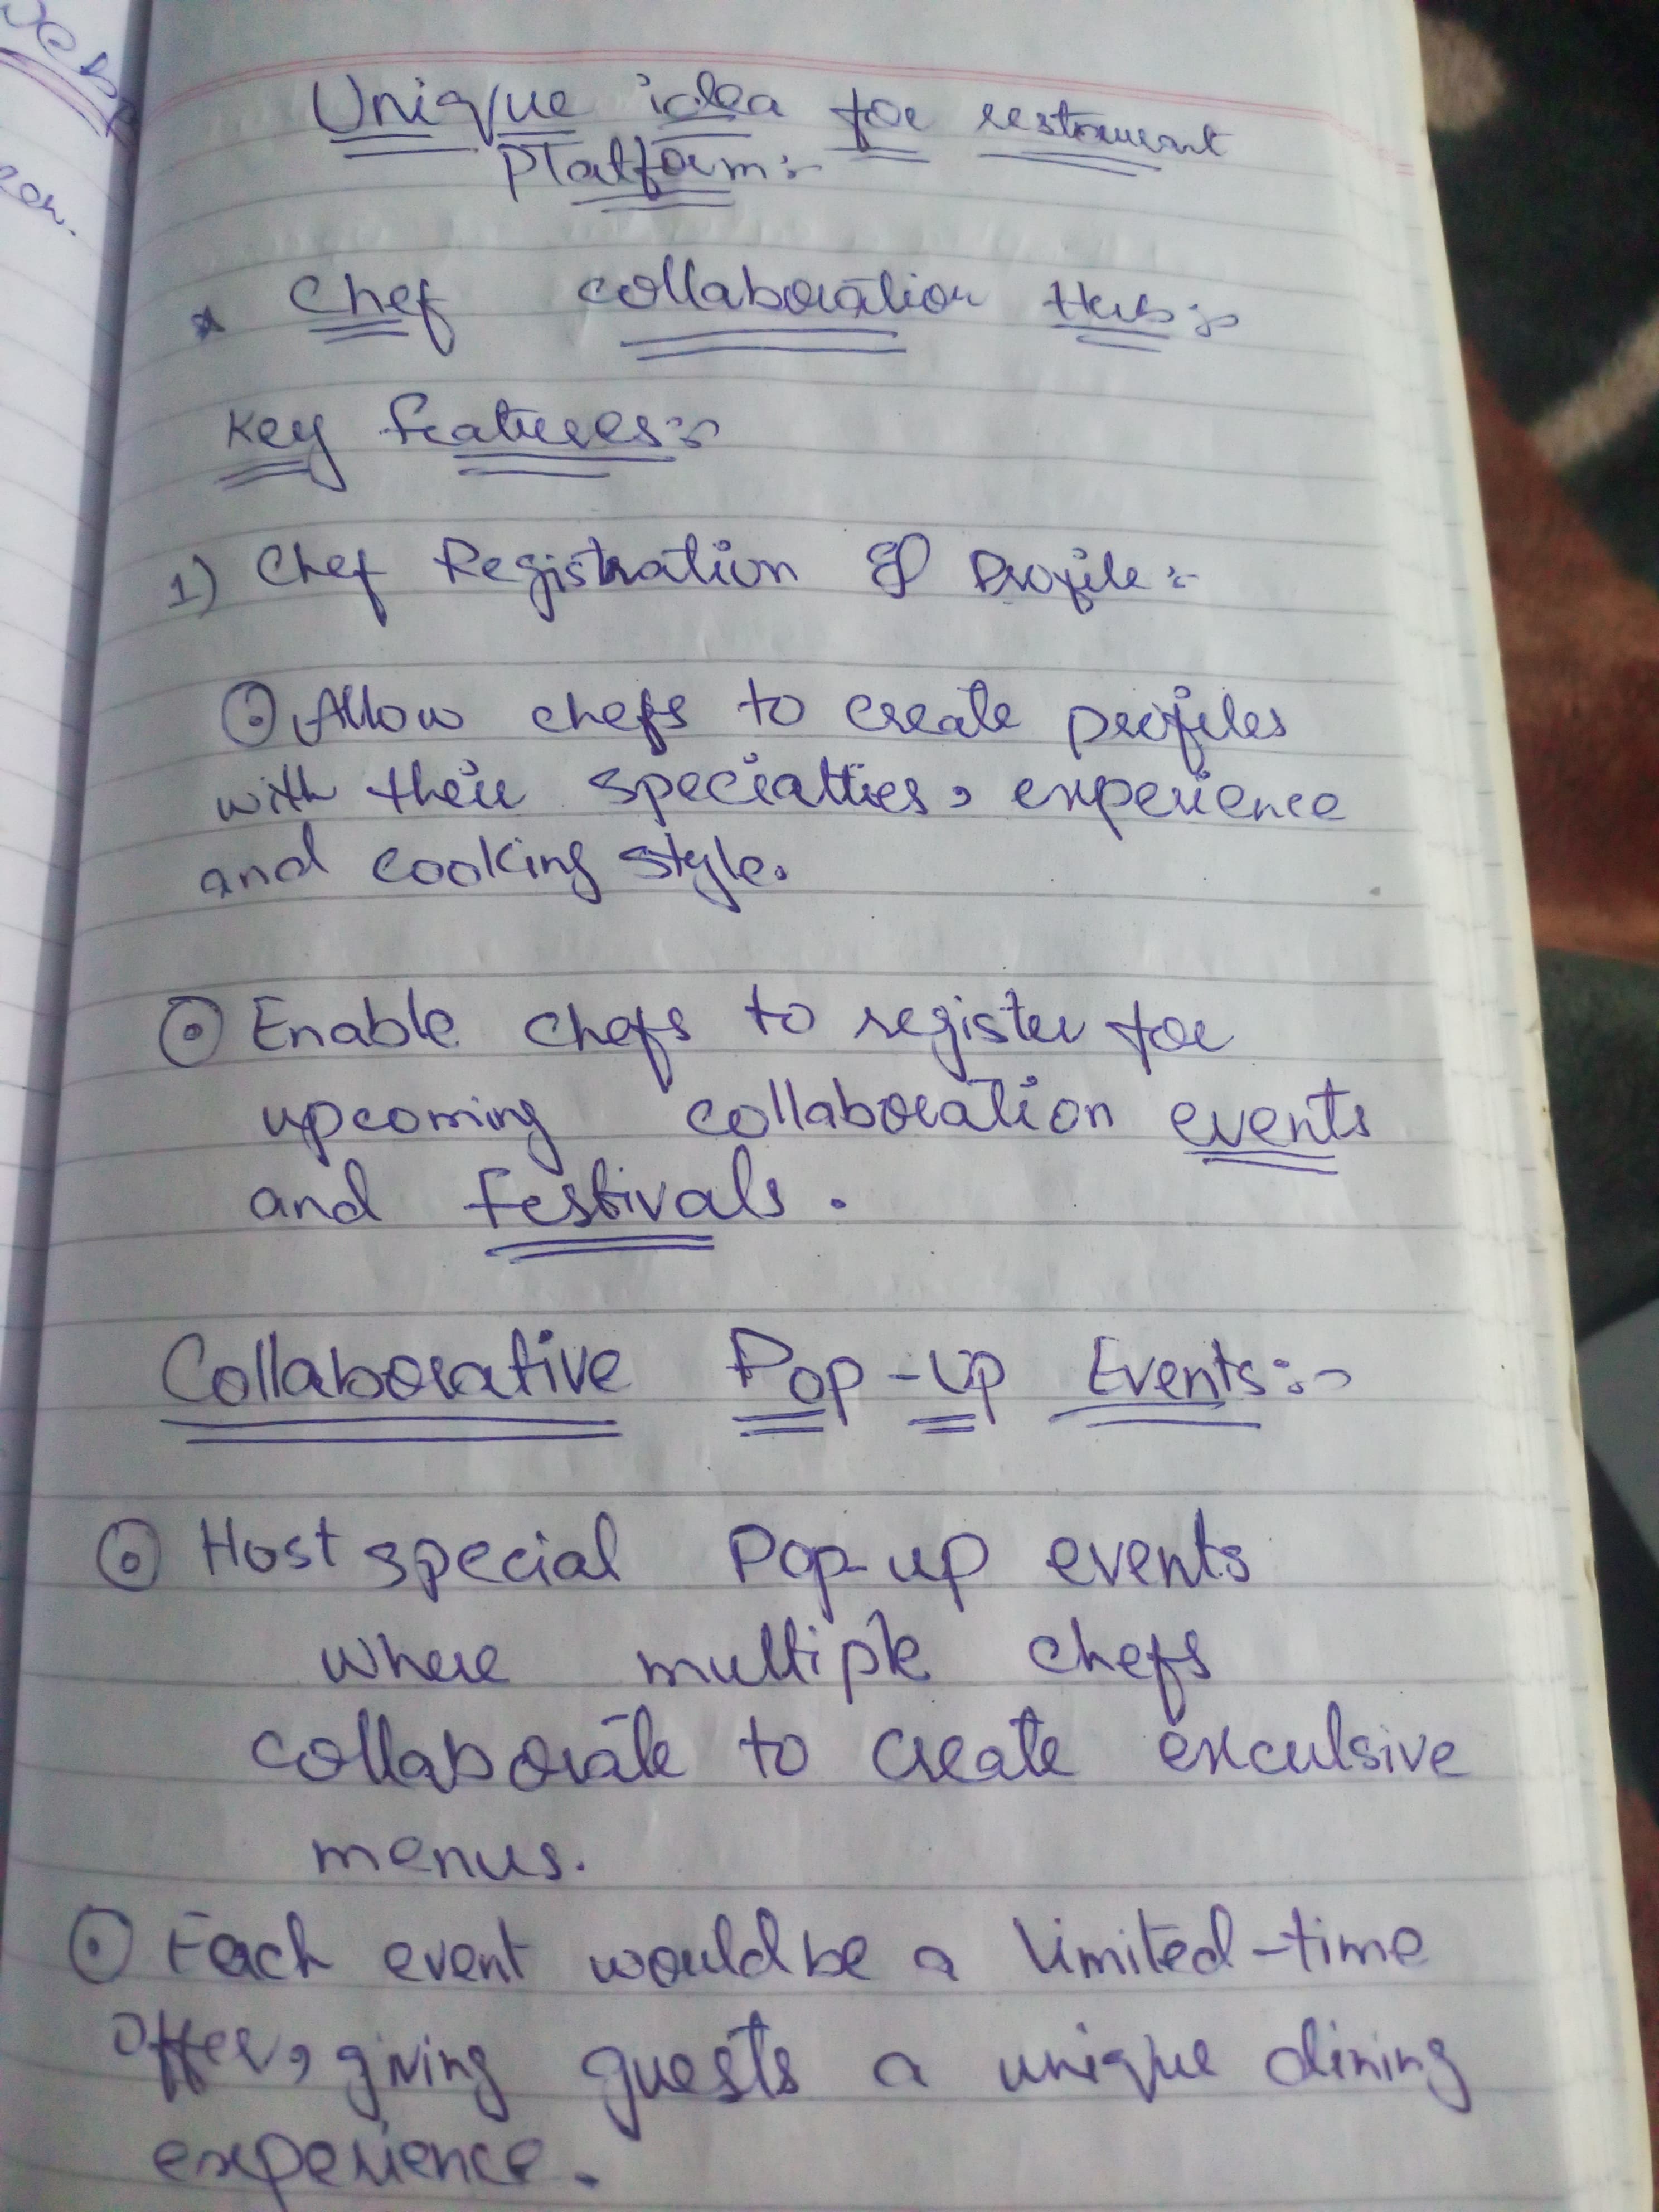 Unique idea for restaurant
Platform:-
* Chef collaboration Hub:-
Key features:-
1) Chef Registration & Profile:-
⊙ Allow chefs to create profiles
with their specialties, experience
and cooking style.
⊙ Enable chefs to register for
upcoming collaboration events
and festivals.
Collaborative Pop-up Events:-
⊙ Host special Pop-up events
where multiple chefs
collaborate to create exculsive
menus.
⊙ Each event would be a limited-time
offer, giving guests a unique dining
experience.